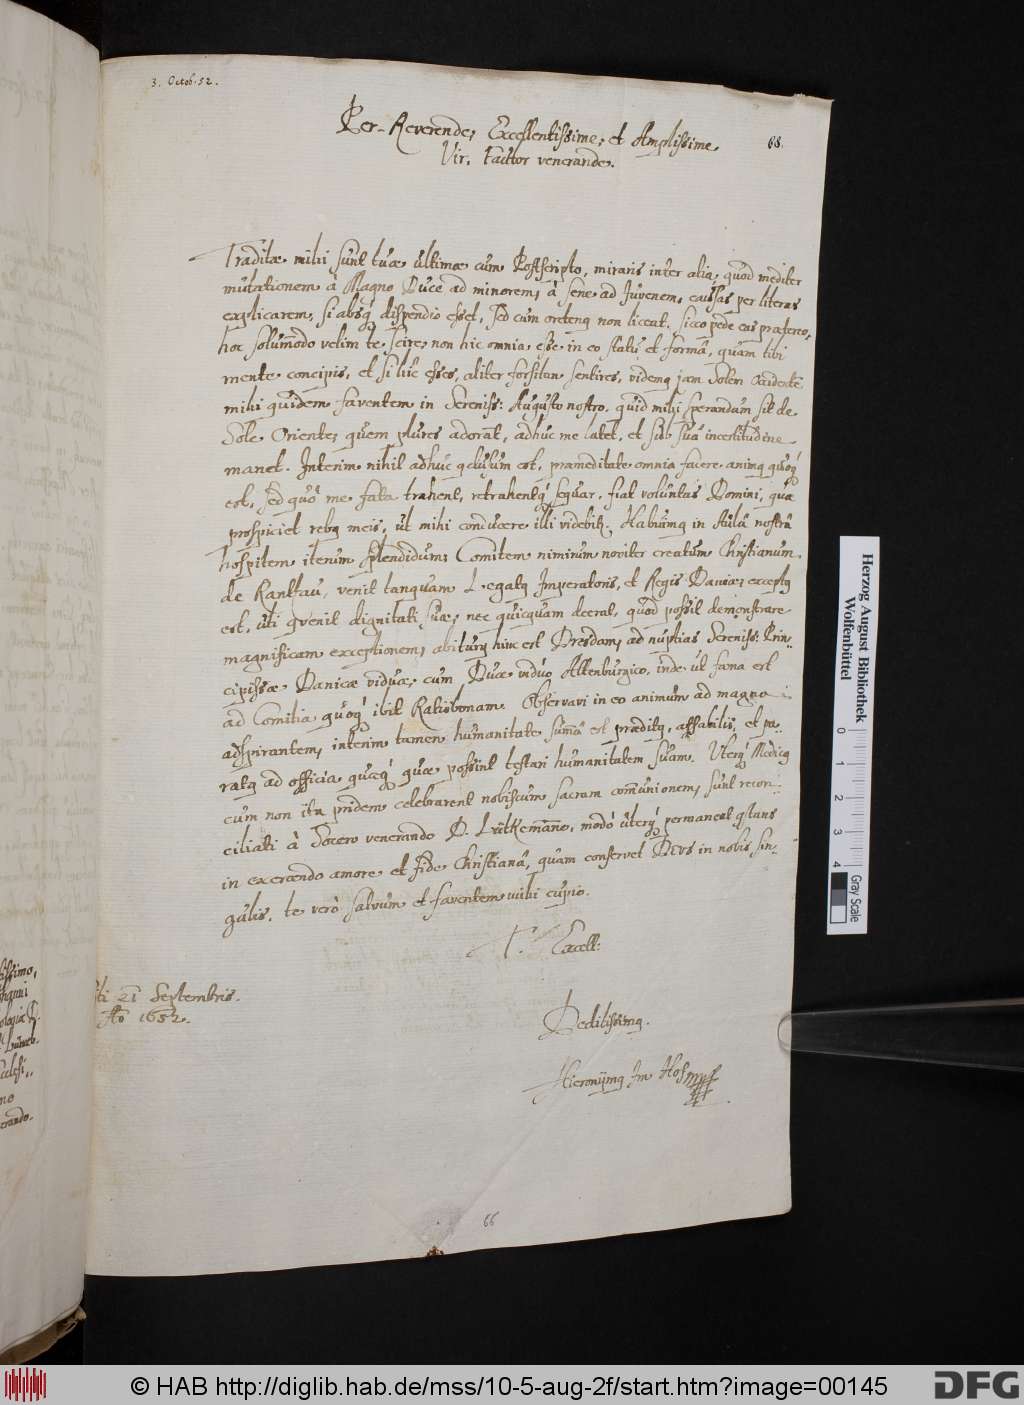 3. Octob. 52.
68.
Per-Reverende, Excellentissime, et Amplissime
Vir, Fautor venerande.
Traditæ mihi sunt tuæ ultimæ cum Postscripto, miraris inter alia, quod mediter
mutationem à Magno Duce ad minorem, à sene ad Juvenem, caussas per literas
explicarem, si absq dispendio esset, sed cum oretenq non liceat, sicco pede eas prætereo,
hoc solummodo velim te scire, non hic omnia esse in eo statu et formâ, quam tibi
mente concipis, et si hic esses, aliter forsitan sentires, videmq jam Solem Occidentem
mihi quidem faventem in Sereniss: Augusto nostro, quid mihi sperandum sit de
Sole Oriente, quem plures adorant, adhuc me latet, et sub suâ incertitudine
manet. Interim nihil adhuc qclusum est, præmeditate omnia facere animq quoq
est, sed quò me fata trahent, retrahentq sequar, fiat voluntas Domini, quæ
prospiciet rebq meis, ut mihi conducere illi videbit. Habuimq in Aulâ nostrâ
hospitem iterum splendidum, Comitem nimirum noviter creatum Christianum
de Rantzau, venit tanquam Legatq Imperatoris, et Regis Daniæ, exceptq
est, uti qvenit dignitati suæ, nec quicquam deerat, quod possit demonstrare
magnificam exceptionem, abiturq hinc est Dresdam, ad nuptias Sereniss: Prin-
cipissæ Danicæ viduæ, cum Duce viduo Altenburgico, inde ut fama est
ad Comitia quoq ibit Ratisbonam. Observavi in eo animum ad magna
adspirantem, interim tamen humanitate summâ est præditq, affabilis, et pa-
ratq ad officia quæq quæ possint testari humanitatem suam. Uterq Medicq
cum non ita pridem celebrarent nobiscum sacram communionem, sunt recon-
ciliati à Socero venerando D. Lütkemanno, modò uterq permaneat qstans
in exercendo amore et fide Christianâ, quam conservet DEVS in nobis sin-
gulis, te verò salvum et faventem mihi cupio.
T. Excell:
21 Septembris.
Ao 1652.
Deditissimq.
Hieronymq Im Hof
66
Herzog August Bibliothek
Wolfenbüttel
0 1 2 3 4
Gray Scale
© HAB http://diglib.hab.de/mss/10-5-aug-2f/start.htm?image=00145
DFG